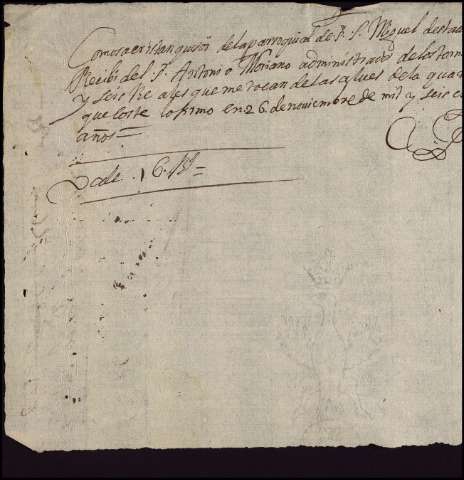 Como sacristan que soi de la parroquial de S. S. Miguel desta
Recibi del S. Antonio Moriano administrador de los
y seis Reales que me tocan de las
que conste lo firmo en 26 de noviembre de mil y seis
años =
Vale 16 Rs =